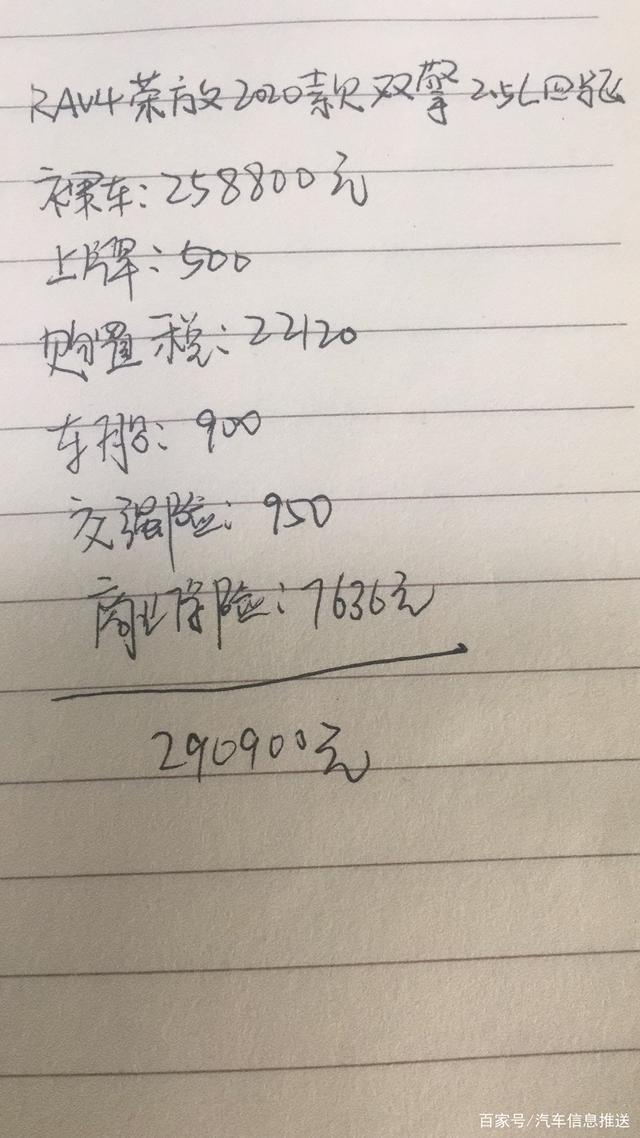 RAV4荣放2020款双擎2.5L四驱
裸车：258800元
上牌：500
购置税：22120
车船：900
交强险：950
商业保险：7636元
290900元
百家号/汽车信息推送